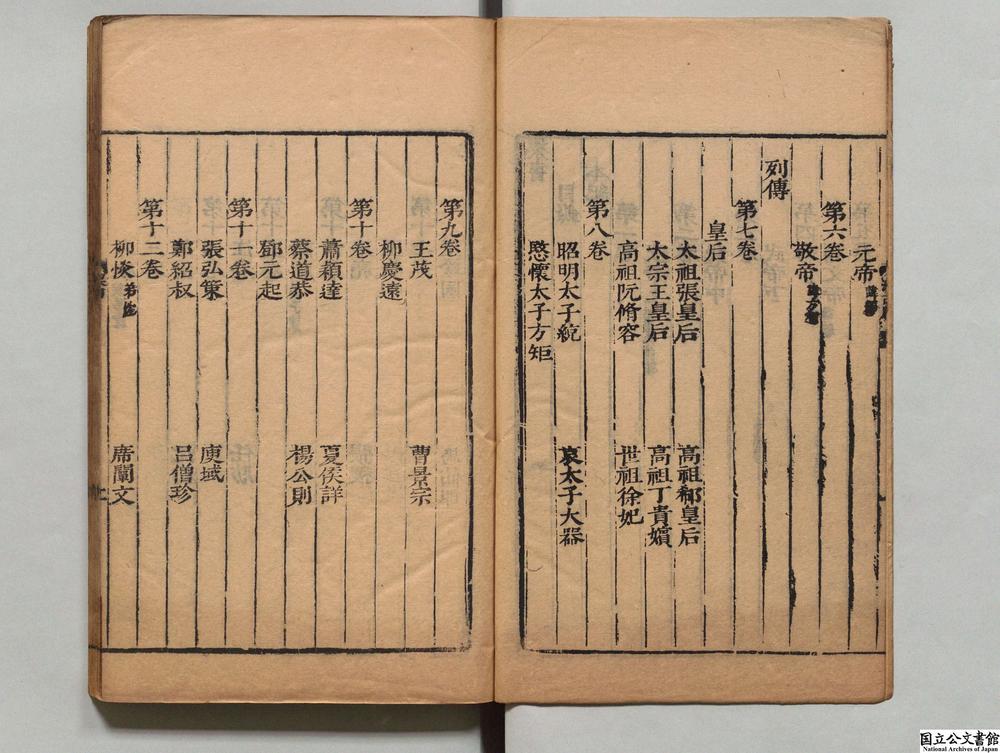 元帝
第六卷
敬帝
列傳
第七卷
皇后
太祖張皇后 高祖郗皇后
太宗王皇后 高祖丁貴嬪
高祖阮脩容 世祖徐妃
第八卷
昭明太子統 哀太子大器
愍懷太子方矩
第九卷
王茂 曹景宗
柳慶遠
第十卷
蕭穎達 夏侯詳
蔡道恭 楊公則
鄧元起
第十一卷
張弘策 庾域
鄭紹叔 呂僧珍
第十二卷
柳惔 席闡文
国立公文書館
National Archives of Japan